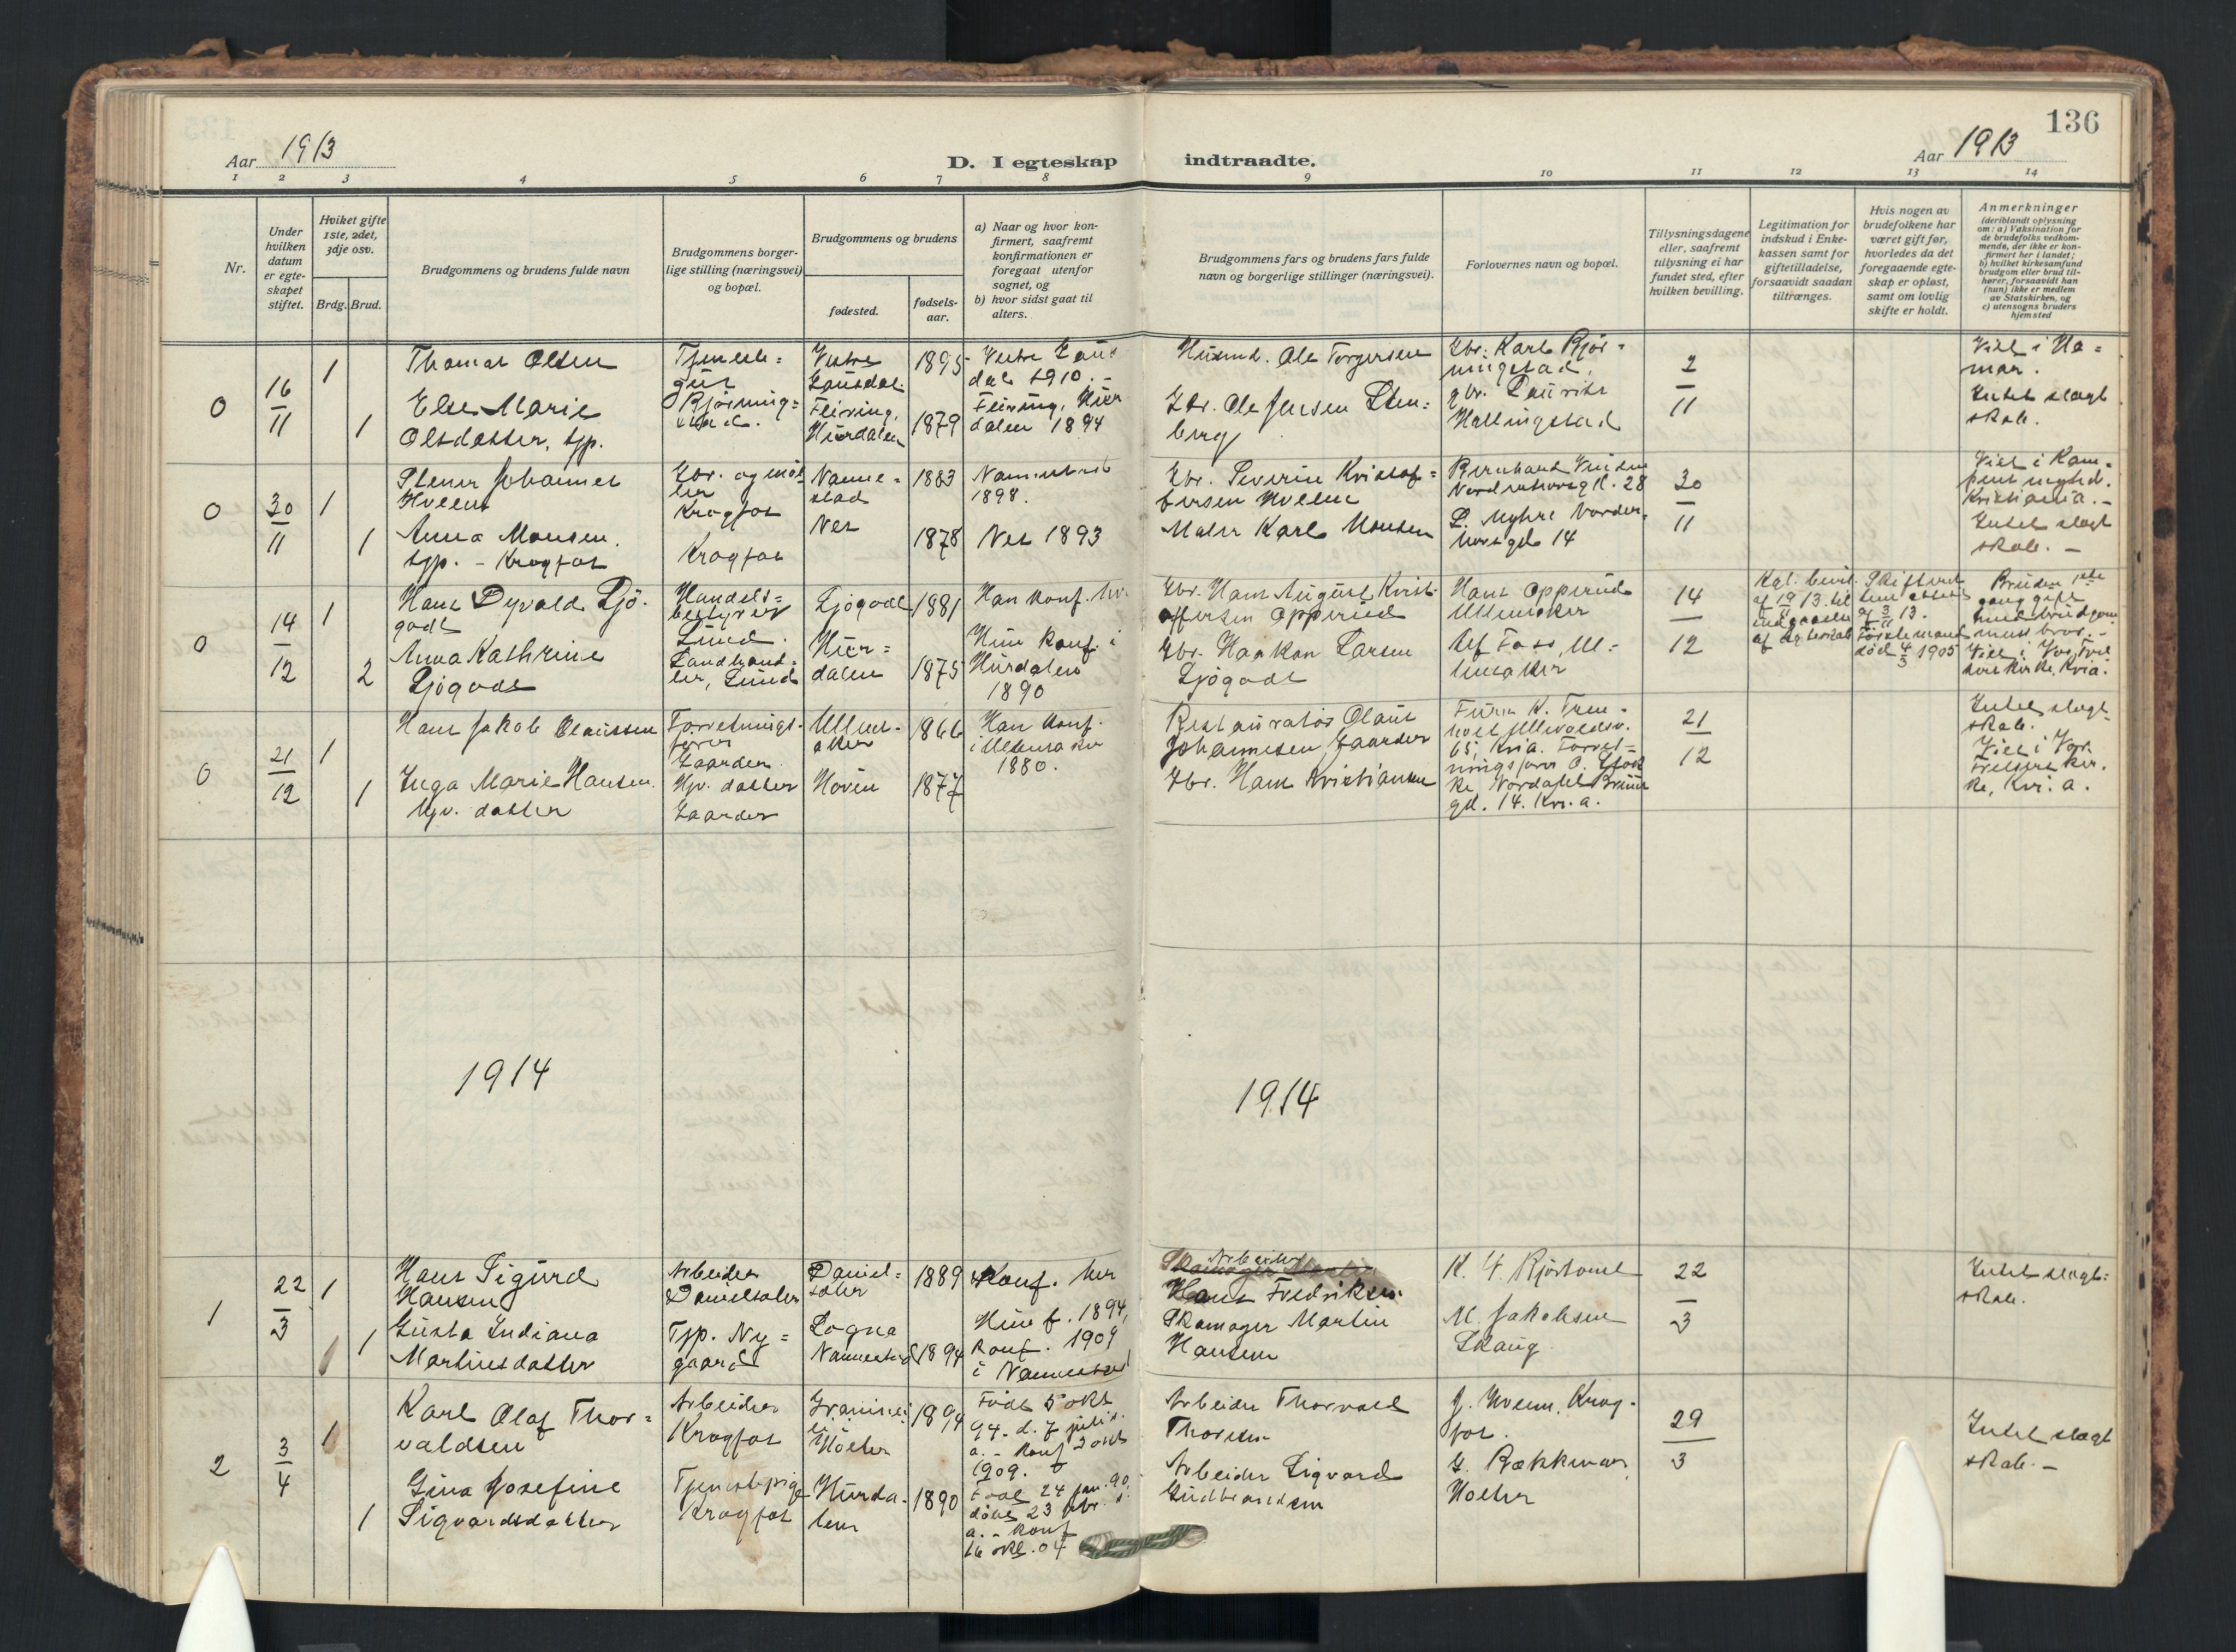 136
Aar 1913
D. I egteskap indtraadte.
Aar 1913
1 2 3 4 5 6 7 8 9 10 11 12 13 14
Nr.
Under
hvilken
datum
er egte-
skapet
stiftet.
Hviket gifte
1ste, 2det,
3dje osv.
Brdg. Brud.
Brudgommens og brudens fulde navn
Brudgommens borger-
lige stilling (næringsvei)
og bopæl.
Brudgommens og brudens
fødested.
fødsels-
aar.
a) Naar og hvor kon-
firmert, saafremt
konfirmationen er
foregaat utenfor
sognet, og
b) hvor sidst gaat til
alters.
Brudgommens fars og brudens fars fulde
navn og borgerlige stillinger (næringsvei).
Forlovernes navn og bopæl.
Tillysningsdagene
eller, saafremt
tillysning ei har
fundet sted, efter
hvilken bevilling.
Legitimation for
indskud i Enke-
kassen samt for
giftetilladelse,
forsaavidt saadan
tiltrænges.
Hvis nogen av
brudefolkene har
været gift før,
hvorledes da det
foregaaende egte-
skap er opløst,
samt om lovlig
skifte er holdt.
Anmerkninger
(deriblandt oplysning
om: a) Vaksination for
de brudefolks vedkom-
mende, der ikke er kon-
firmert her i landet;
b) hvilket kirkesamfund
brudgom eller brud til-
hører, forsaavidt han
(hun) ikke er medlem
av Statskirken, og
c) utensogns bruders
hjemsted
0
16
11
1
Thomas Olsen
1
Else Marie
Olsdatter, tjp.
Tjeneste=
gut
Bjørning=
stad.
Vestre
Gausdal.
Feiring,
Hurdalen
1895
1879
Vestre Gaus
dal 1910. -
Feiring, Hur
dalen 1894
Husmd. Ole Torgersen
Gbr. Ole Jensen Sten=
berg
Gbr. Karl Bjør=
ningstad.
gbr. Laurits
Hallingstad
2
11
Viet i Ha=
mar.
Intet slegt
skab.
0
30
11
1
Stener Johannes
Hveem
1
Anna Monsen.
tjp. - Krogfos
Gbr. og møl
ler
Krogfos
Krogfos
Nanne=
stad
Nes
1883
1878
Nannestad
1898.
Nes 1893
Gbr. Severin Kristof=
fersen Hveem
Maler Karl Monsen
Bernhard
28
L. Myhre Norder.
hovsgd. 14
30
11
Viet i Kam=
pens mghd.
Kristiania. -
Intet slegt
skab. -
0
14
12
1
Hans Dyvald Ljø-
godt
2
Anna Kathrine
Ljøgodt
Handels=
bestyrer
Lund.
Landhand=
ler, Lund
Ljøgodt
Hur=
dalen
1881
1875
Han konf. her
Hun konf. i
Hurdalen
1890
Gbr. Hans August Krist-
offersen Opperud
Gbr. Haakon Larsen
Ljøgodt
Hans Opperud
Ullensaker
Alf Foss, Ul=
lensaker
14
12
Kgl. bevil.
af 19/11 13 til
indgaaelse
af egteskab
Skifteret
tens attest
af 3/11 13.
Første mand
død 4/3 1905
Bruden 1ste
gang gift
med brudgom
mens bror. -
Viet i Vor Frel
sers Kirke, Kria.
0
21
12
1
Hans Jakob Olaussen
1
Inga Marie Hansen.
Hjv. datter
Forretnings-
fører
Gaarder.
Hjv. datter
Gaarder
Ullens-
aker
Hovin
1866
1877
Han konf.
i Ullensaker
1880.
Restauratør Olaus
Johannesen Gaarder
Gbr. Hans Kristiansen
65, Kria. Forret=
ningsfører
gd. 14. Kri.a.
21
12
Intet slegt-
skab.
Viet i Vor.
Frelsers kir.
ke, Kri.a.
1914
1914
1
22
3
1
Hans Sigurd
Hansen
1
Gusta Indiana
Martinsdatter
Arbeider
Danielsæter
Tjp. Ny=
gaard
Daniel=
sæter
Nannestad
1889
1894
Konf. her
Hun f. 1894,
konf. 1909
i Nannestad
Arbeider
Hans Fredriksen
Skomager Martin
Hansen
M. Jakobsen
Skaug
22
3
Intet slegt=
skab.
2
3
4
1
Karl Olaf Thor=
valdsen
1
Gina Josefine
Sigvardsdatter
Arbeider
Krogfos
Tjenestepige
Krogfos
Holter
Hurda-
len
1894
1890
Født 5 okt
94. d. 7 juli s.
a. - konf 3 okt
1909.
Født 24 jan. 90
døbt 23 febr. s.
a. - konf
16 okt. 04
Arbeider Thorvald
Thoresen
Arbeider Sigvard
Gudbrandsen
J. Hveem, Krog-
fos.
G. Bækkevar
Holter
29
3
Intet slegt
skab. -